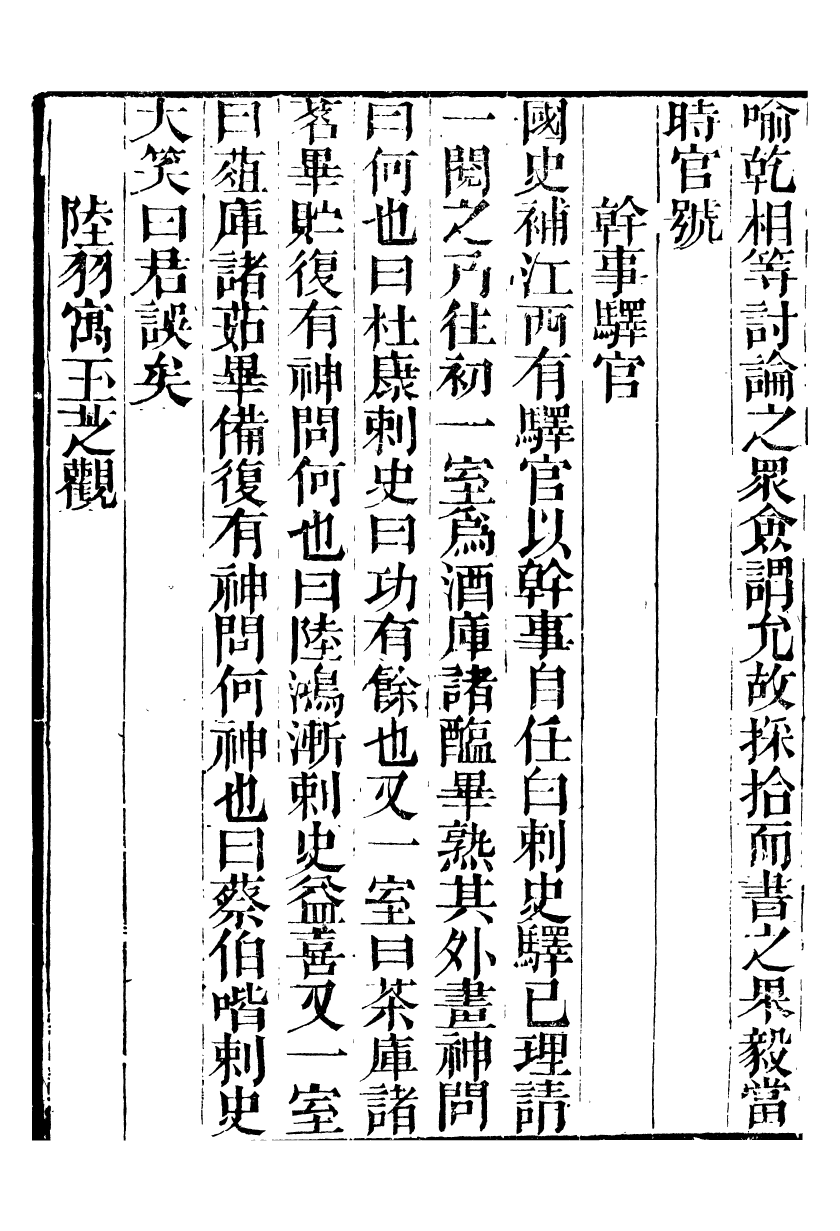 喻乾相等討論之眾僉謂允故採拾而書之果毅當
時官號
幹事驛官
國史補江西有驛官以幹事自任白刺史驛已理請
一閱之乃往初一室爲酒庫諸醞畢熟其外畫神問
曰何也曰杜康刺史曰功有餘也又一室曰茶庫諸
茗畢貯復有神問何也曰陸鴻漸刺史益喜又一室
曰葅庫諸茹畢備復有神問何神也曰蔡伯喈刺史
大笑曰君誤矣
陸羽寓玉芝觀